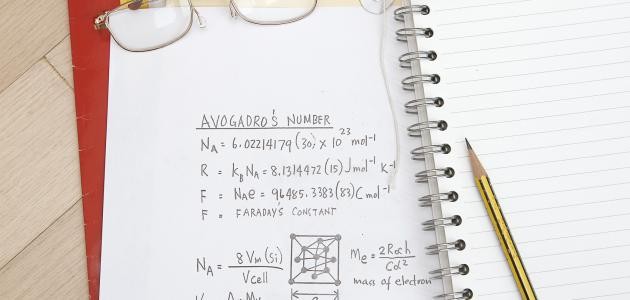 AVOGADRO'S NUMBER
N_A = 6.02214179(30) x 10^23 mol^-1
R = k_B N_A = 8.1314472(15) J mol^-1 K^-1
F = N_A e = 96485.3383(83) C mol^-1
F = FARADAY'S CONSTANT
N_A = 8 V_m (Si) / V cell
M_e = 2R∞h / Cα^2
mass of electron